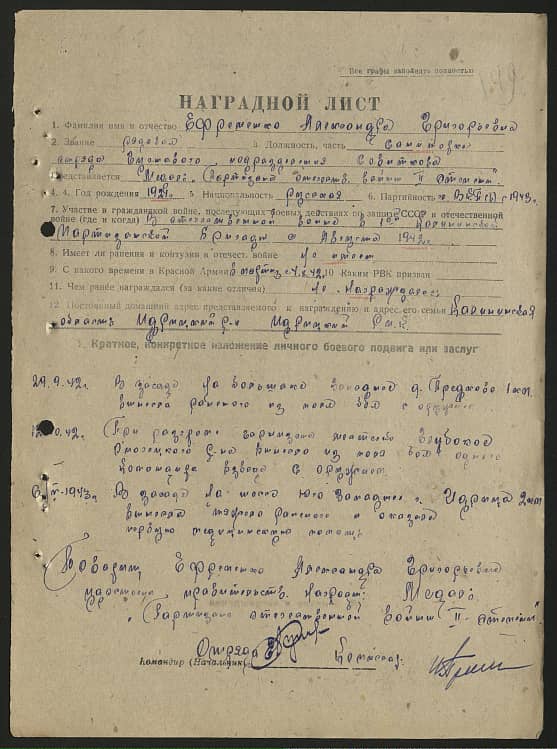 Все графы заполнять полностью
НАГРАДНОЙ ЛИСТ
1. Фамилия имя и отчество Ефременко Александра Григорьевна
2. Звание рядовая 3. Должность, часть Санитарка
отряда подразделения
представляется Медали "Партизан отечеств. войны II степени"
4. Год рождения 5. Национальность русская 6. Партийность с 1943г.
7. Участие в гражданской войне, последующих боевых действиях по защите СССР и отечественной
войне (где и когда) В отечественной войне в Калининской
Партизанской Бригаде с Августа
8. Имеет ли ранения и контузии в отечест. войне Не имеет
9. С какого времени в Красной Армии 10 Каким РВК призван
11. Чем ранее награждался (за какие отличия) Не награждалась
12. Постоянный домашний адрес представляемого к награждению и адрес его семьи Калининская
область Идрицкий р-н Идрицкий
Краткое, конкретное изложение личного боевого подвига или заслуг
В засаде на большаке западнее д. 1 км.
вынесла раненого из поля боя с оружием.
При разгроме гарнизона местечко Глубокое
Опочецкого р-на вынесла из поля боя одного
команды взвода с оружием
В засаде на шоссе Юго Западнее г. Идрица 2 км
вынесла тяжело раненого и оказала
первую медицинскую помощь
Товарищ Ефременко Александра Григорьевна
достойна правительств. награды: Медаль
"Партизан отечественной войны II степени"
Командир (Начальник) Комиссар